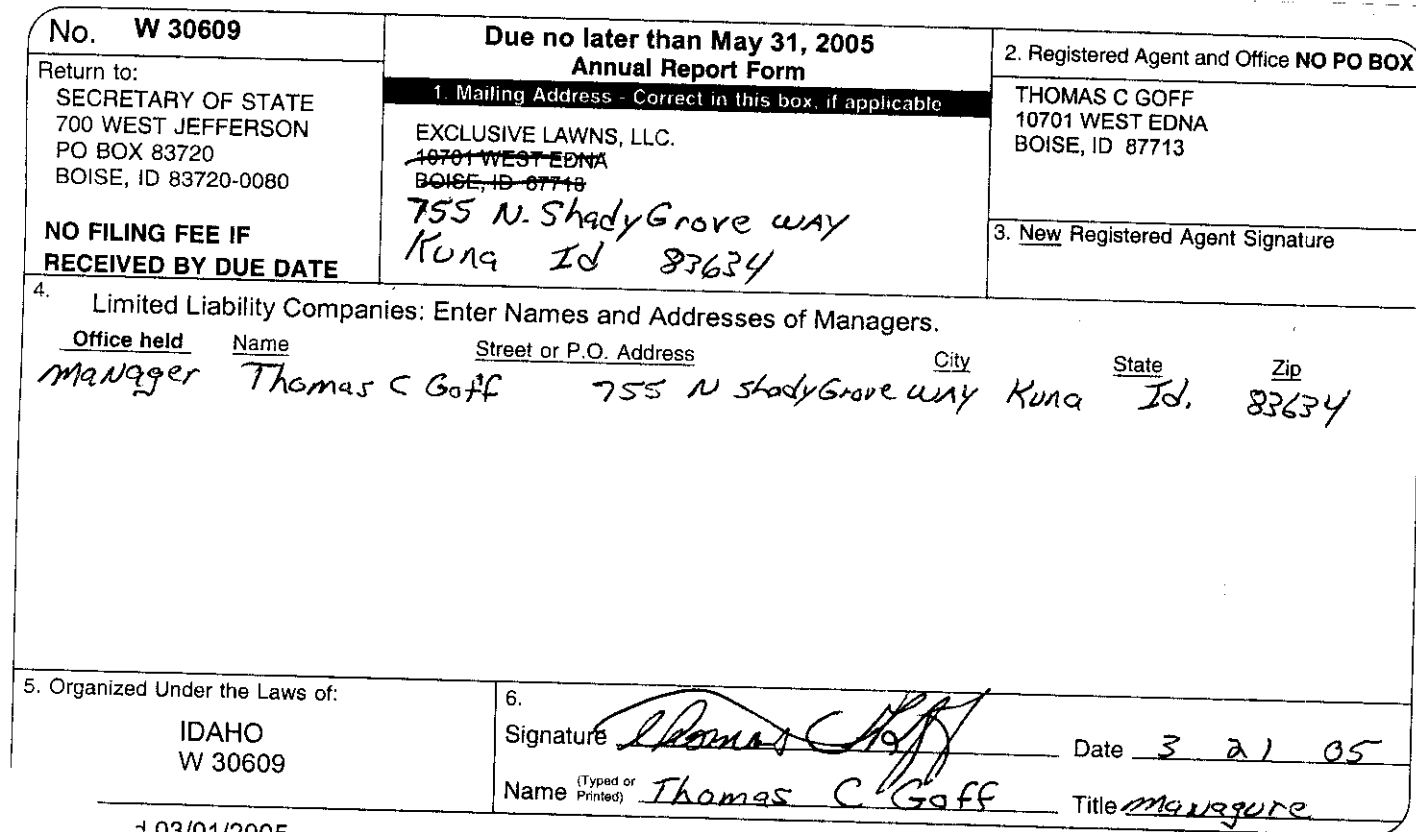 No. W 30609
Return to:
SECRETARY OF STATE
700 WEST JEFFERSON
PO BOX 83720
BOISE, ID 83720-0080
NO FILING FEE IF
RECEIVED BY DUE DATE
Due no later than May 31, 2005
Annual Report Form
1. Mailing Address - Correct in this box, if applicable
EXCLUSIVE LAWNS, LLC.
10701 WEST EDNA
BOISE, ID 87713
755 N. Shady Grove WAY
Kuna Id 83634
2. Registered Agent and Office NO PO BOX
THOMAS C GOFF
10701 WEST EDNA
BOISE, ID 87713
3. New Registered Agent Signature
4. Limited Liability Companies: Enter Names and Addresses of Managers.
Office held Name Street or P.O. Address City State Zip
Manager Thomas C Goff 755 N Shady Grove WAY Kuna Id. 83634
5. Organized Under the Laws of:
IDAHO
W 30609
6.
Signature Thomas C Goff Date 3 21 05
Name (Typed or Printed) Thomas C Goff Title Managure
03/01/2005